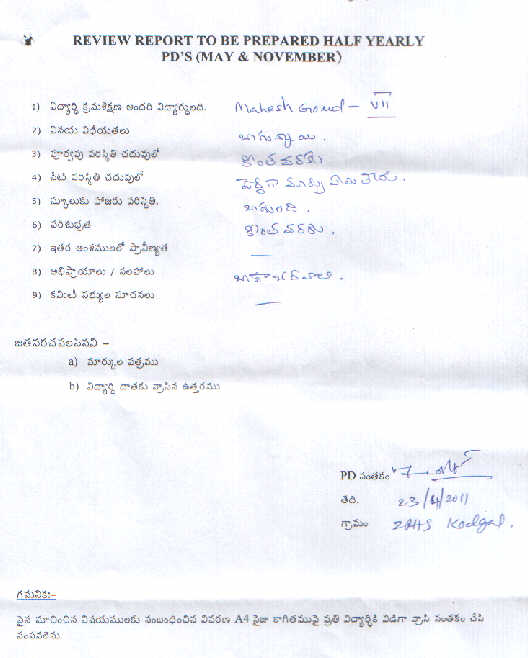 REVIEW REPORT TO BE PREPARED HALF YEARLY
PD'S (MAY & NOVEMBER)
1) విద్యార్థి క్రమశిక్షణ అందరి విద్యార్థులది. Mahesh Goud - VII
2) వినయ విధేయతలు బాగున్నాయి.
3) పూర్వపు పరిస్థితి చదువులో కొంత వరకు
4) నేటి పరిస్థితి చదువులో
5) స్కూలుకు హాజరు పరిస్థితి. బాగుంది.
6) పరిశుభ్రత కొంత వరకు.
7) ఇతర అంశములలో ప్రావీణ్యత —
8) అభిప్రాయాలు / సలహాలు
9) కమిటీ సభ్యుల సూచనలు —
జతపరచవలసినవి –
a) మార్కుల పత్రము
b) విద్యార్థి దాతకు వ్రాసిన ఉత్తరము
PD సంతకం
తేది. 23/4/2011
గ్రామం ZPHS Kodgal.
గమనిక:–
పైన సూచించిన విషయములకు సంబంధించిన వివరణ A4 సైజు కాగితముపై ప్రతి విద్యార్థికి విడిగా వ్రాసి సంతకం చేసి
పంపవలెను